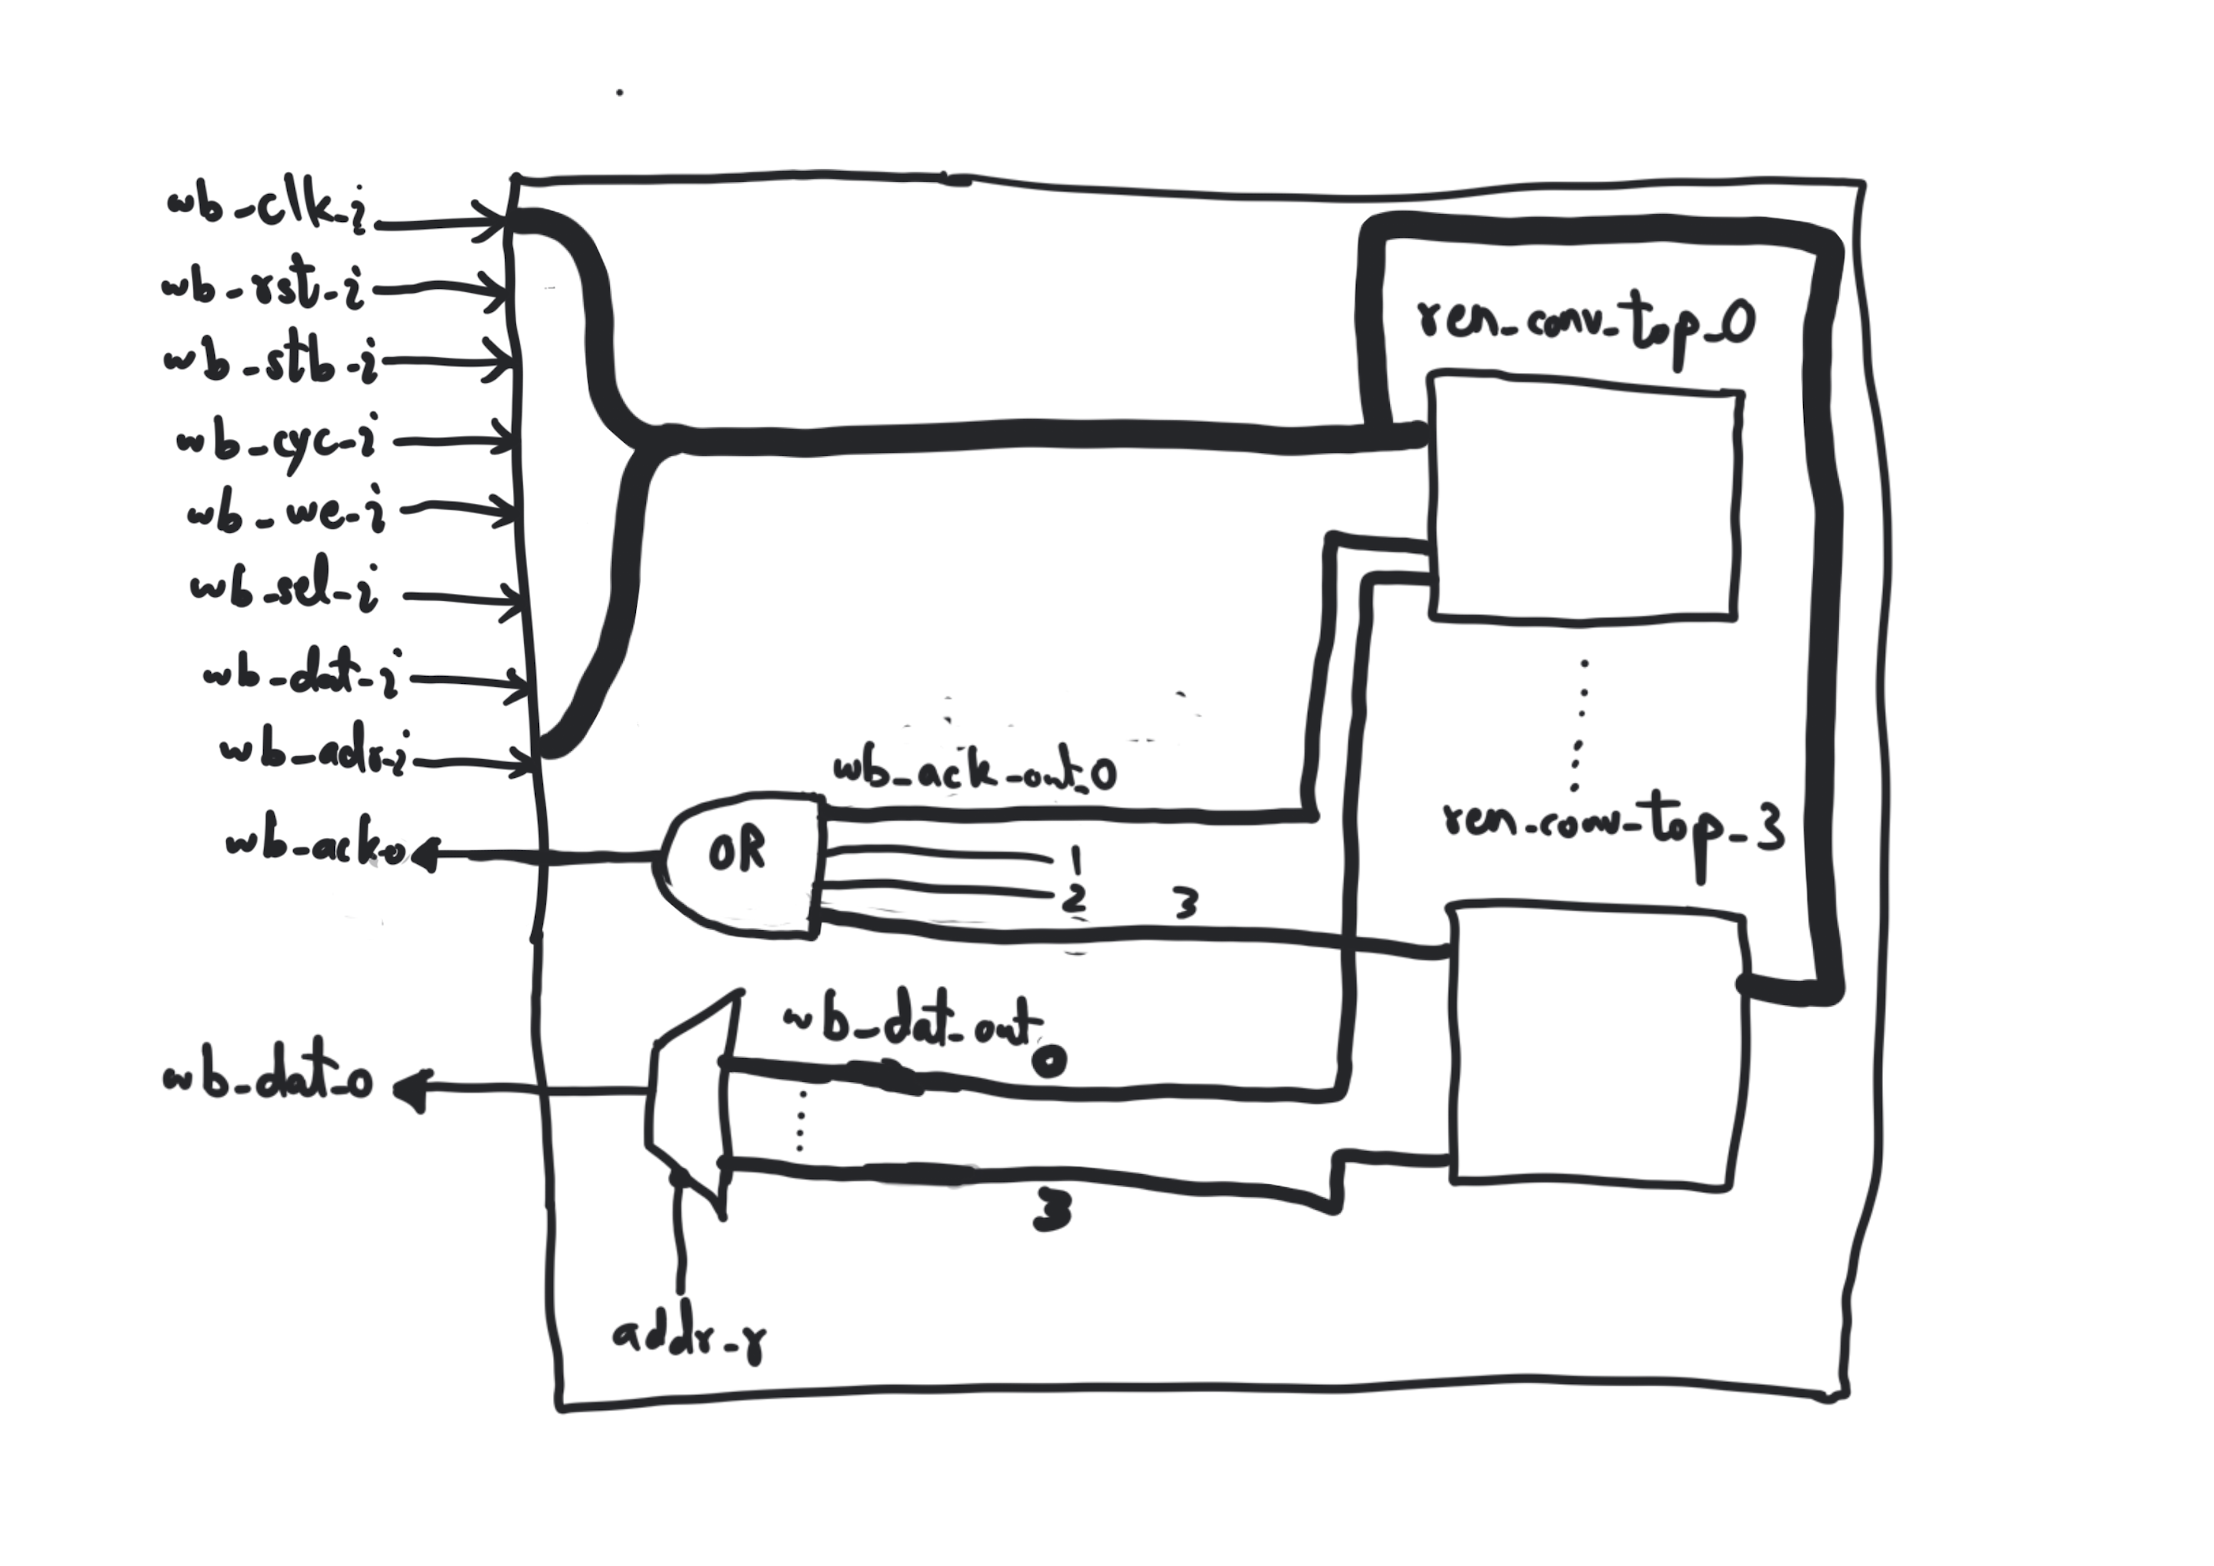 wb-clk-i
wb-rst-i
wb-stb-i
wb-cyc-i
wb-we-i
wb-sel-i
wb-dat-i
wb-adr-i
wb-ack-o
wb-dat-o
ren-conv-top-0
ren-conv-top-3
wb-ack-out-0
OR
1
2
3
wb-dat-out
0
3
addr-r